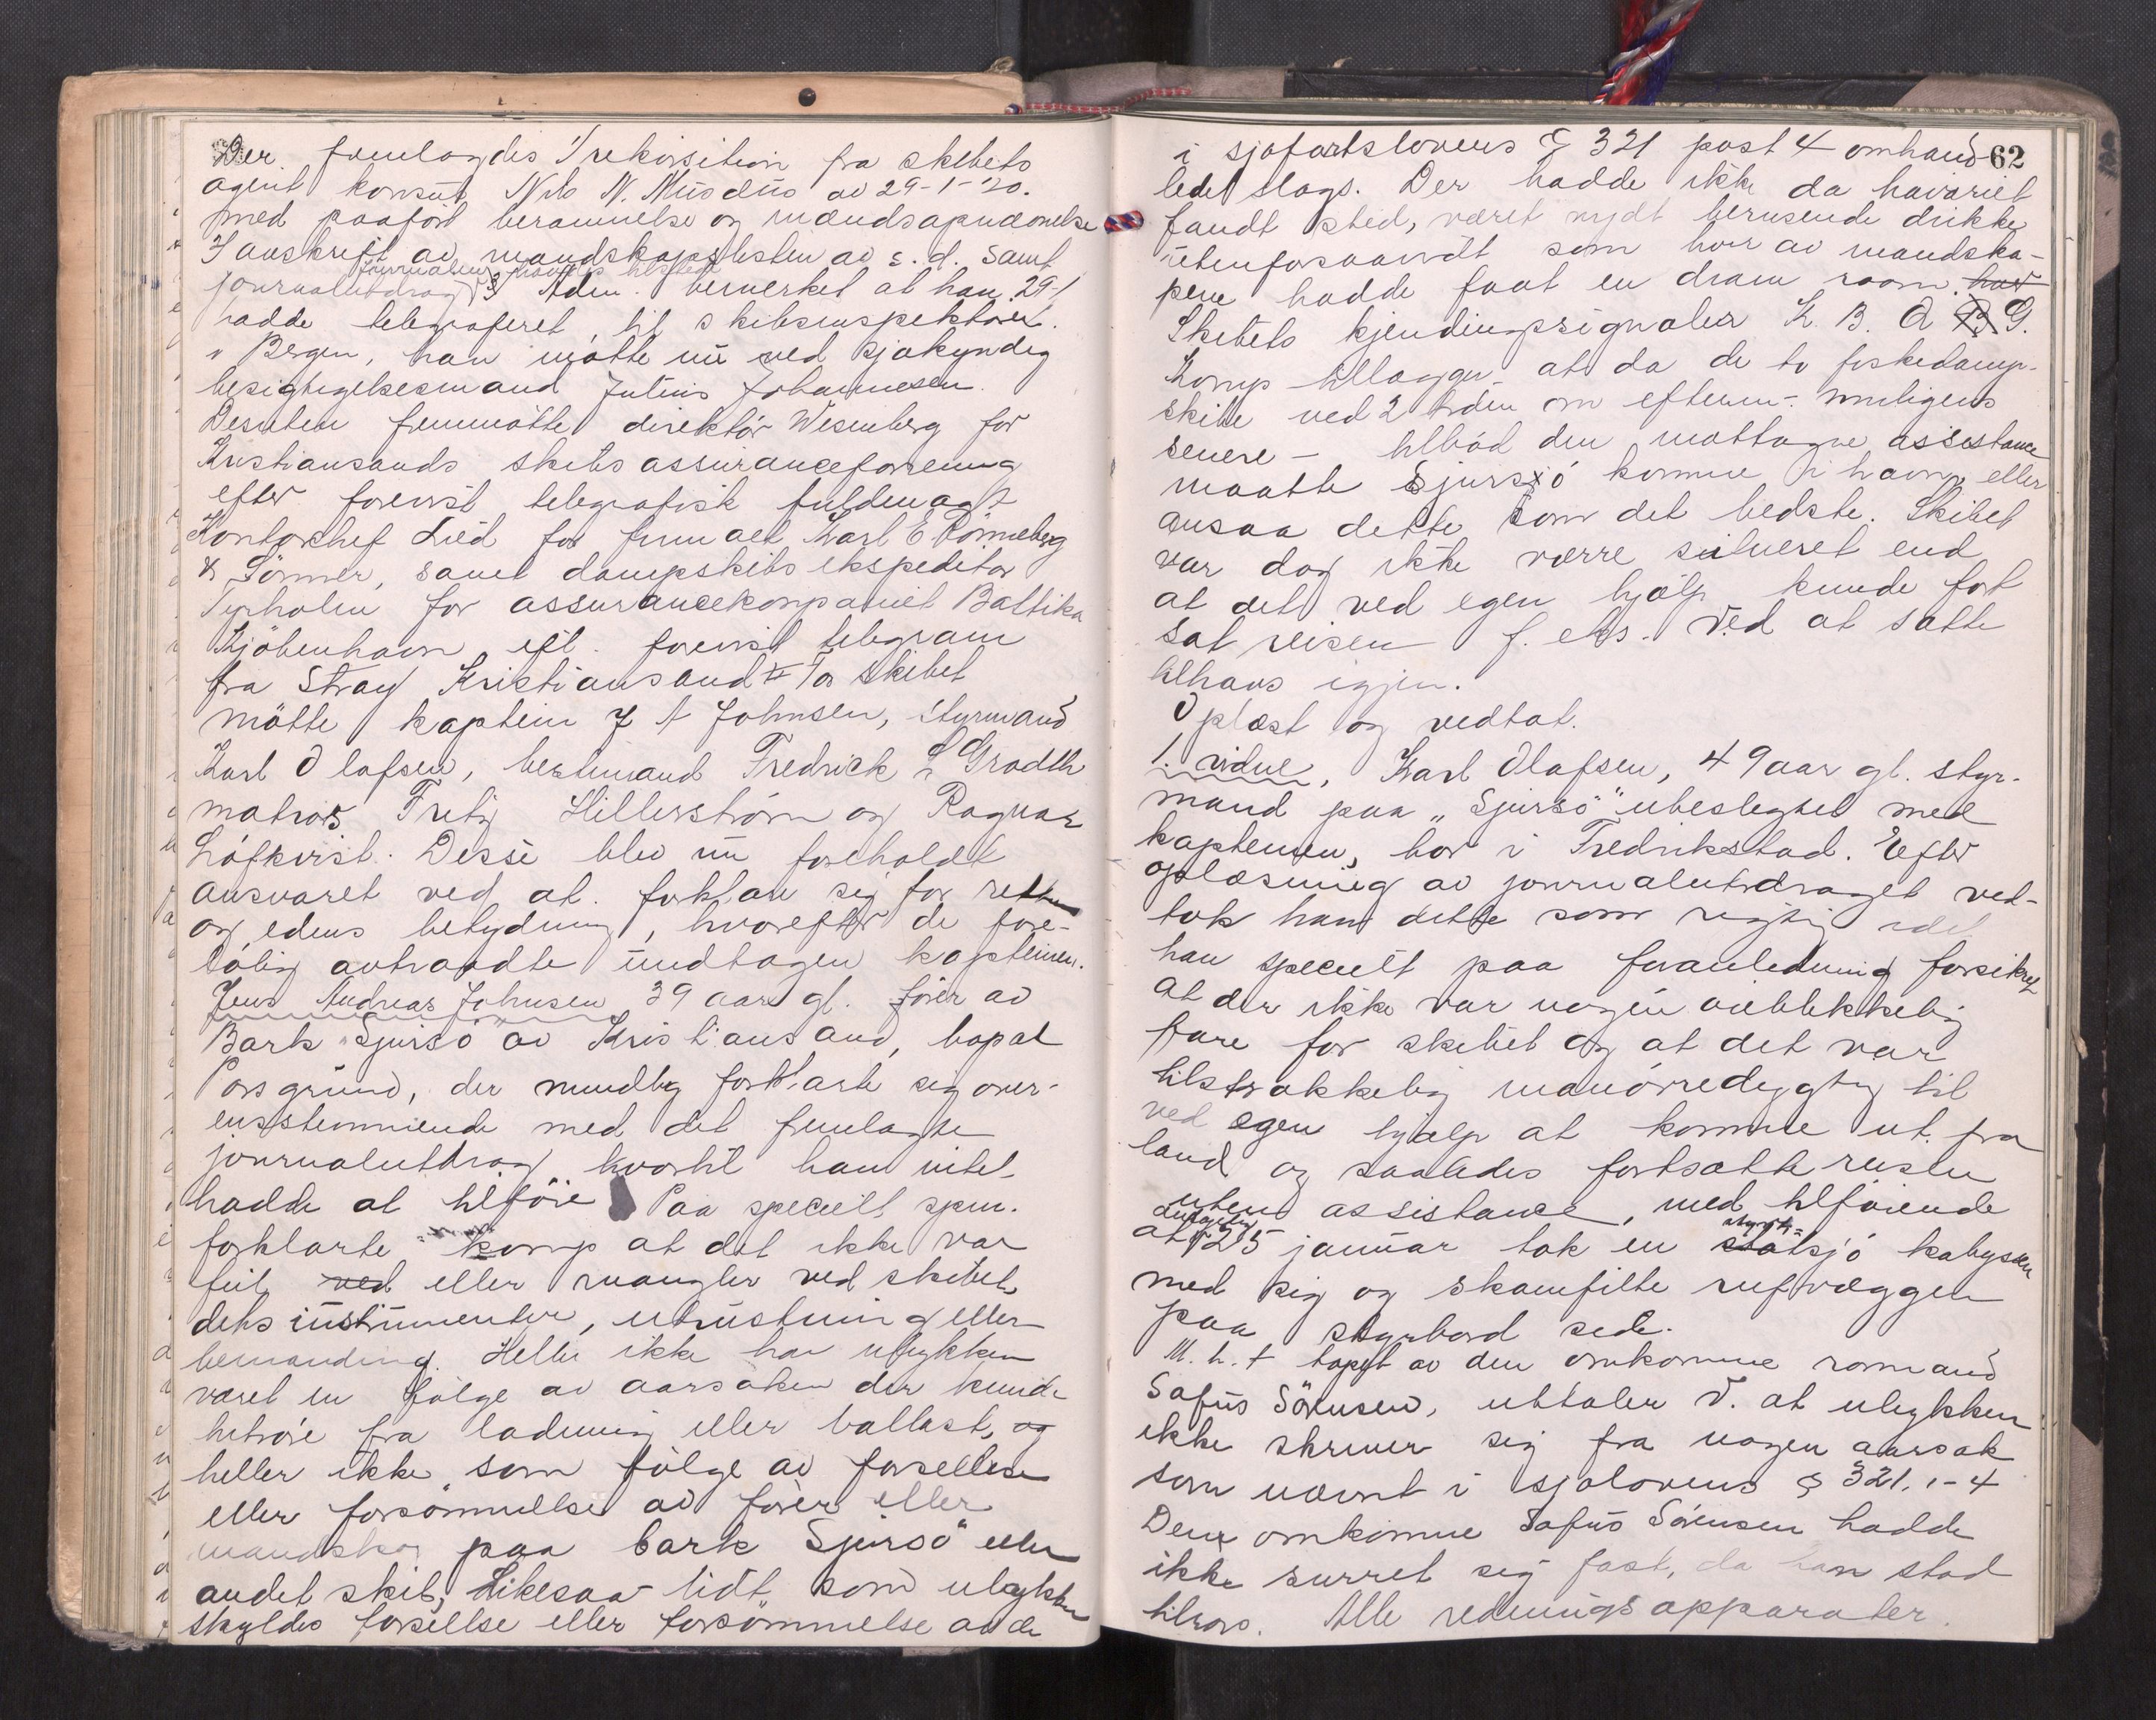 Der fremlagdes 1/ rekvisition fra skibets
agent konsul Nils N. Musæus av 29-1-20.
med paaført berammelse og mandsopnævnelse
2/ avskrift av mandskapslisten av s.d. samt
journalutdrag 3/ Adm. bemerket at han 29-1
hadde telegraferet til skibsinspektøren
i Bergen, han møtte nu ved sjøkyndig
besigtigelsesmand Julius Johannesen.
Desuten fremmøtte direktør Wesenberg for
Kristiansands skibsassuranceforening
efter forevist telegrafisk fuldmagt
Kontorchef Lied for firmaet Karl E Rönneberg
& Sönner, samt dampskibsekspeditør
Tyrholm for assurancekompaniet Baltika
Kjöbenhavn eft. forevist telegram
fra Stray Kristiansand For skibet
mötte kaptein J A Johnsen, styrmand
Karl Olafsen, bestmand Fredrick
matros Fritz Hillerström og Ragnar
Löfkvist. Disse blev nu foreholdt
ansvaret ved at forklare sig for retten
og edens betydning, hvorefter de fore-
löbig avtraadte undtagen kapteinen.
Jens Andreas Johnsen 39 aar gl. förer av
Bark "Sjursö" av Kristiansand, bopæl
Porsgrund, der mundtlig forklarte sig over-
ensstemmende med det fremlagte
journalutdrag hvortil han intet
hadde at tilföie Paa specielt spm.
forklarte komp at det ikke var
feil ved eller mangler ved skibet,
dets instrumenter, utrustning eller
bemanding. Heller ikke har ulykken
været en fölge av aarsaken der kunde
hitröre fra ladning eller ballast, og
heller ikke som fölge av forseelse
eller forsömmelse av förer eller
mandskap paa bark Sjursö eller
andet skib, Likesaa lidt som ulykken
skyldes forseelse eller forsömmelse av de
62
i sjøfartslovens § 321 post 4 omhand-
ledet slags. Der hadde ikke da havariet
fandt sted, været nydt berusende drikke,
utenforsaavidt som hver av mandska-
pene hadde faat en dram room. har
Skibets kjendingssignaler K. B. Q G.
Komp tillægger at da de to fiskedamp-
skibe ved 2 tiden om efterm. muligens
senere - tilböd den mottagne assistance
maatte Sjursö komme i havn, eller
ansaa dette som det bedste. Skibet
var dog ikke værre situeret end
at det ved egen hjælp kunde fort
sat reisen f. eks. ved at sætte
tilhavs igjen.
Oplæst og vedtat.
1. vidne, Karl Olafsen, 49 aar gl. styr-
mand paa "Sjursö" ubeslegtet med
kapteinen, bor i Fredrikstad. Efter
oplæsning av journalutdraget ved-
tok han dette som rigtig idet
han specielt paa foranledning forsikret
at der ikke var nogen öieblikkelig
fare for skibet og at det var
tilstrækkelig manövredygtig til
ved egen hjælp at komme ut fra
land og saaledes fortsætte reisen
uten assistance, med tilföiende
at 25 januar tok en styrt-
sjö kabyssen
med sig og skamfilte rufvæggen
paa styrbord side.
M. h. t tapet av den omkomne romand
Sofus Sörensen, uttaler V. at ulykken
ikke skriver sig fra nogen aarsak
som nævnt i sjölovens § 321. 1-4
Den omkomne Sofus Sörensen hadde
ikke surret sig fast, da han stod
tilrors. Alle redningsapparater.